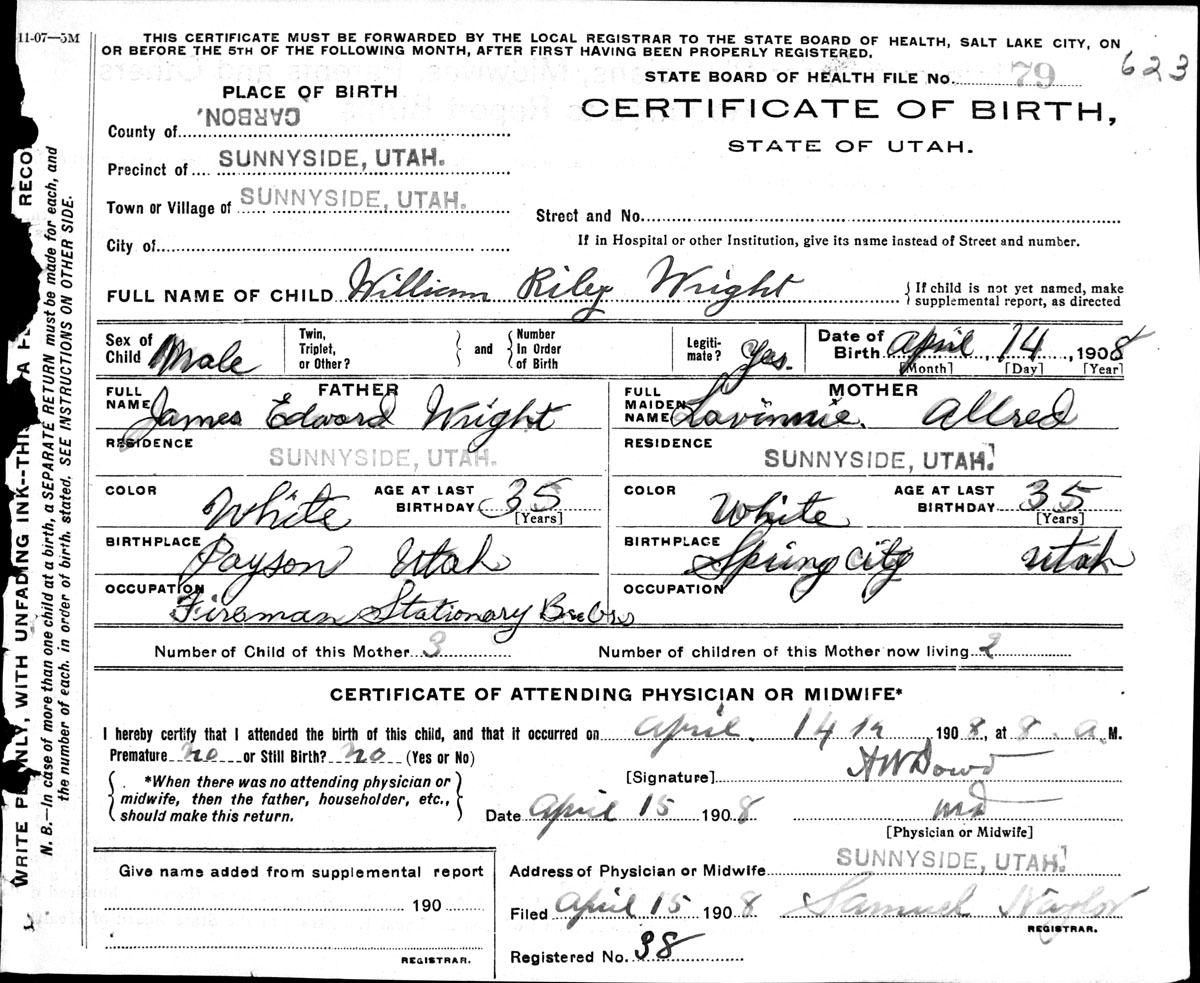 11-07—5M
THIS CERTIFICATE MUST BE FORWARDED BY THE LOCAL REGISTRAR TO THE STATE BOARD OF HEALTH, SALT LAKE CITY, ON
OR BEFORE THE 5TH OF THE FOLLOWING MONTH, AFTER FIRST HAVING BEEN PROPERLY REGISTERED.
STATE BOARD OF HEALTH FILE No. 79
623
PLACE OF BIRTH
CERTIFICATE OF BIRTH,
STATE OF UTAH.
County of CARBON,
Precinct of SUNNYSIDE, UTAH.
Town or Village of SUNNYSIDE, UTAH.
Street and No.
City of
If in Hospital or other Institution, give its name instead of Street and number.
FULL NAME OF CHILD William Riley Wright
{ If child is not yet named, make
supplemental report, as directed
Sex of Child Male
Twin, Triplet, or Other? } and { Number In Order of Birth
Legiti- mate? Yes.
Date of Birth April 14, 1908
[Month] [Day] [Year]
FATHER
FULL NAME James Edward Wright
MOTHER
FULL MAIDEN NAME Lavinnie. Allred
RESIDENCE SUNNYSIDE, UTAH.
RESIDENCE SUNNYSIDE, UTAH.
COLOR White AGE AT LAST BIRTHDAY 35 [Years]
COLOR White AGE AT LAST BIRTHDAY 35 [Years]
BIRTHPLACE Payson Utah
BIRTHPLACE Spring City Utah
OCCUPATION Fireman Stationary
OCCUPATION
Number of Child of this Mother 3
Number of children of this Mother now living 2
CERTIFICATE OF ATTENDING PHYSICIAN OR MIDWIFE*
I hereby certify that I attended the birth of this child, and that it occurred on April. 14 th 1908, at 8. a. M.
Premature no or Still Birth? no (Yes or No)
{ *When there was no attending physician or
midwife, then the father, householder, etc.,
should make this return. }
[Signature] HW Dowd
Date April 15 1908 MD
[Physician or Midwife]
Give name added from supplemental report
190
REGISTRAR.
Address of Physician or Midwife SUNNYSIDE, UTAH.
Filed April 15 1908 Samuel Naylor
REGISTRAR.
Registered No. 38
WRITE PLAINLY, WITH UNFADING INK--THIS
A
RECO
N. B.—In case of more than one child at a birth, a SEPARATE RETURN must be made for each, and
the number of each, in order of birth, stated. SEE INSTRUCTIONS ON OTHER SIDE.